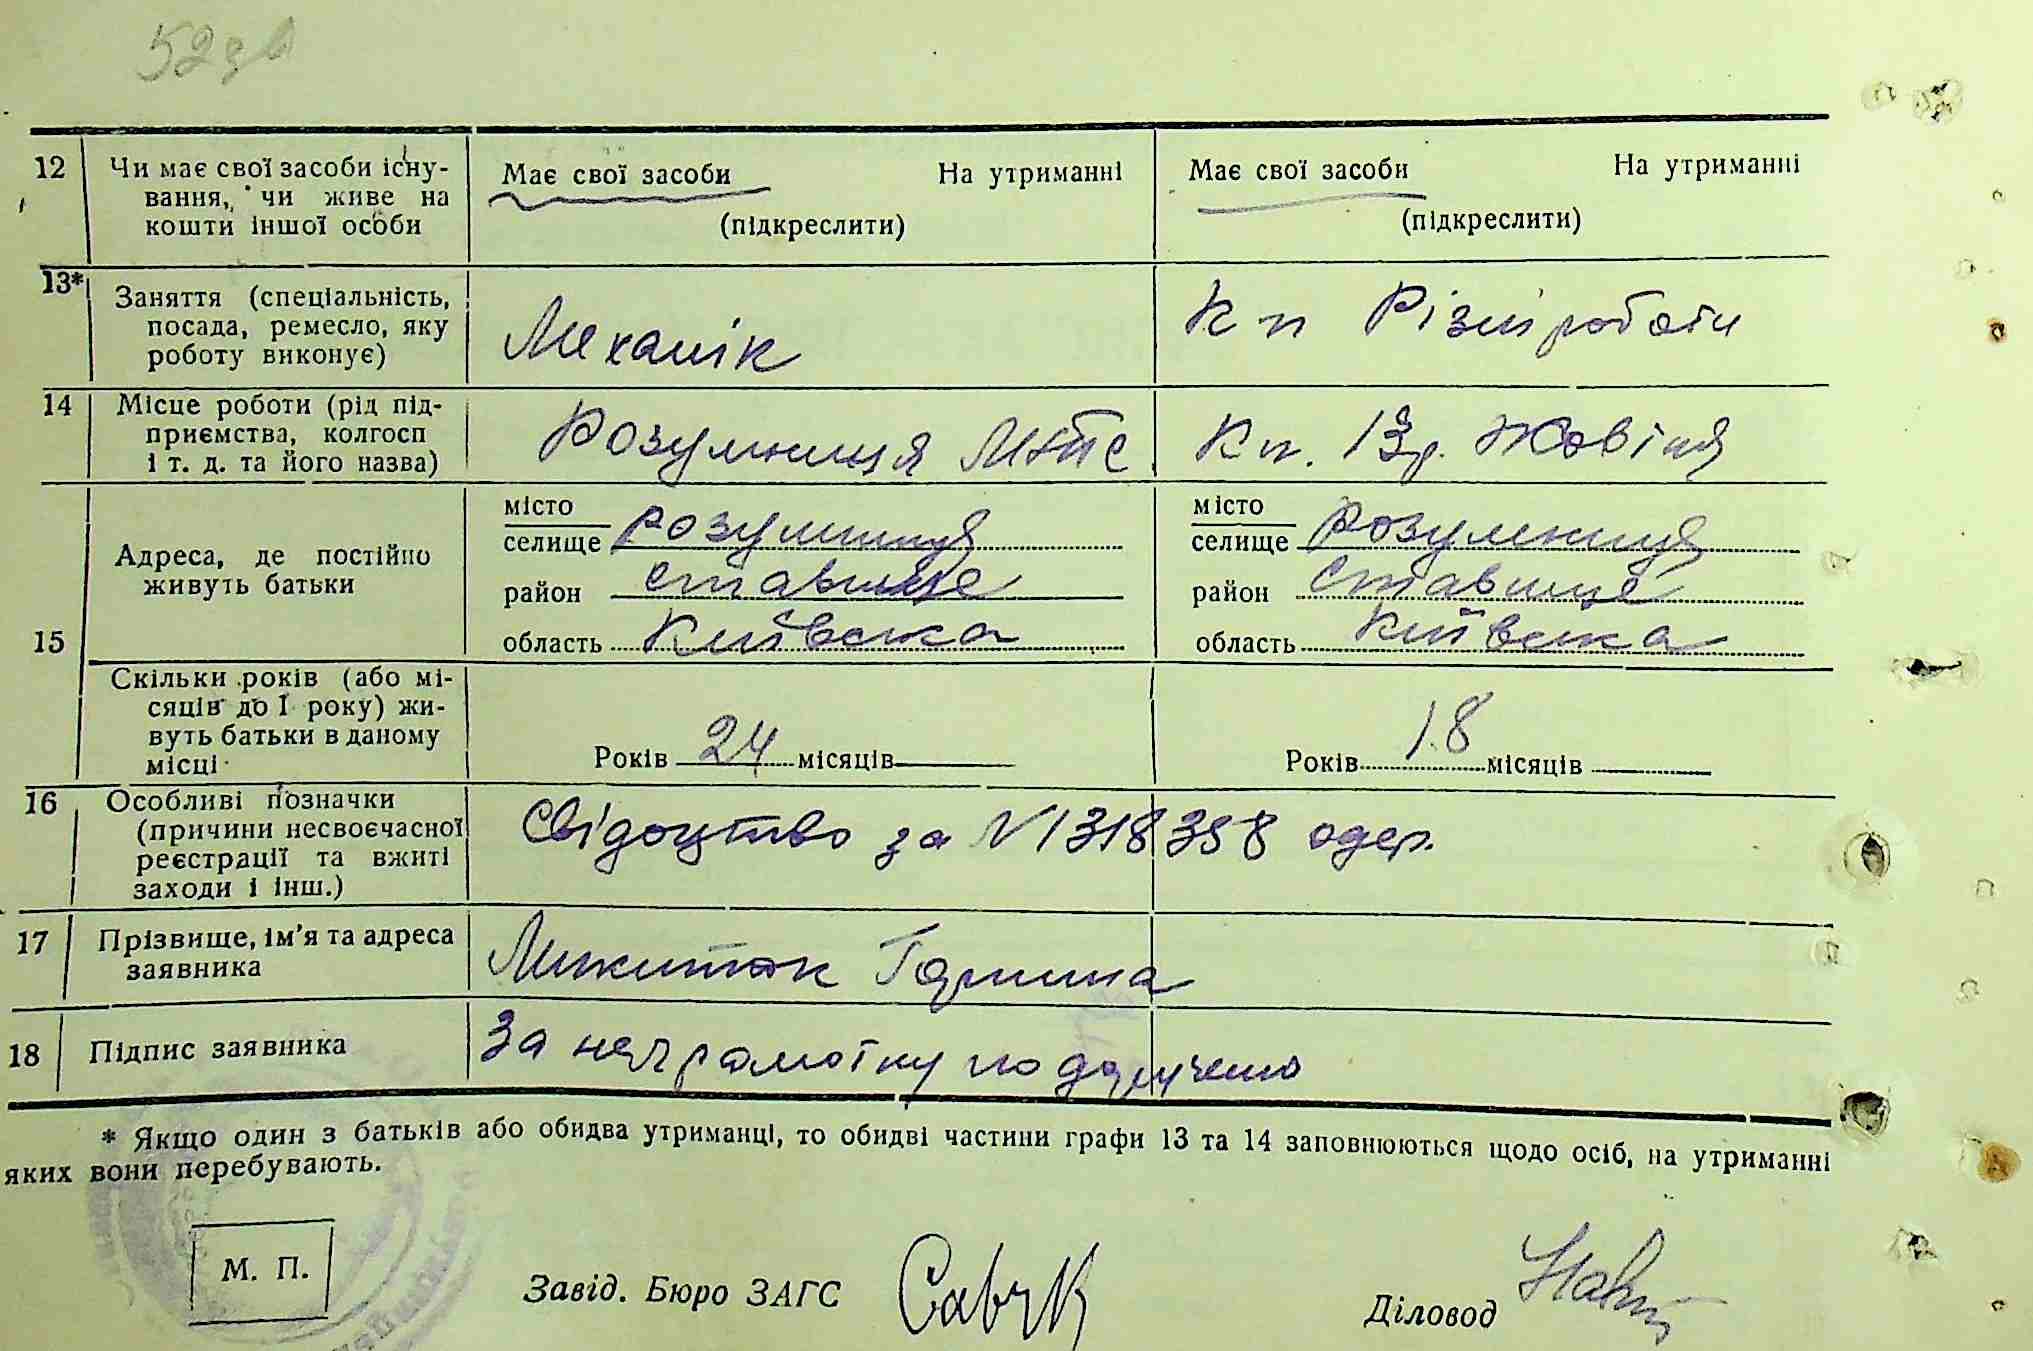 52зв
12 Чи має свої засоби існу-
вання, чи живе на
кошти іншої особи
Має свої засоби На утриманні
(підкреслити)
Має свої засоби На утриманні
(підкреслити)
13* Заняття (спеціальність,
посада, ремесло, яку
роботу виконує)
Механік
Кп Різні роботи
14 Місце роботи (рід під-
приємства, колгосп
і т. д. та його назва)
Розумниця МТС
Кп. 13р. Жовтня
15
Адреса, де постійно
живуть батьки
місто
селище Розумниця
район Ставище
область Київська
місто
селище Розумниця
район Ставище
область Київська
Скільки років (або мі-
сяців до 1 року) жи-
вуть батьки в даному
місці
Років 24 місяців
Років 18 місяців
16 Особливі позначки
(причини несвоєчасної
реєстрації та вжиті
заходи і інш.)
Свідоцтво за N 1318358 одер.
17 Прізвище, ім'я та адреса
заявника
Микитюк Ганна
18 Підпис заявника
За неграмотну по доручено
* Якщо один з батьків або обидва утриманці, то обидві частини графи 13 та 14 заповнюються щодо осіб, на утриманні
яких вони перебувають.
М. П.
Завід. Бюро ЗАГС Савчук
Діловод